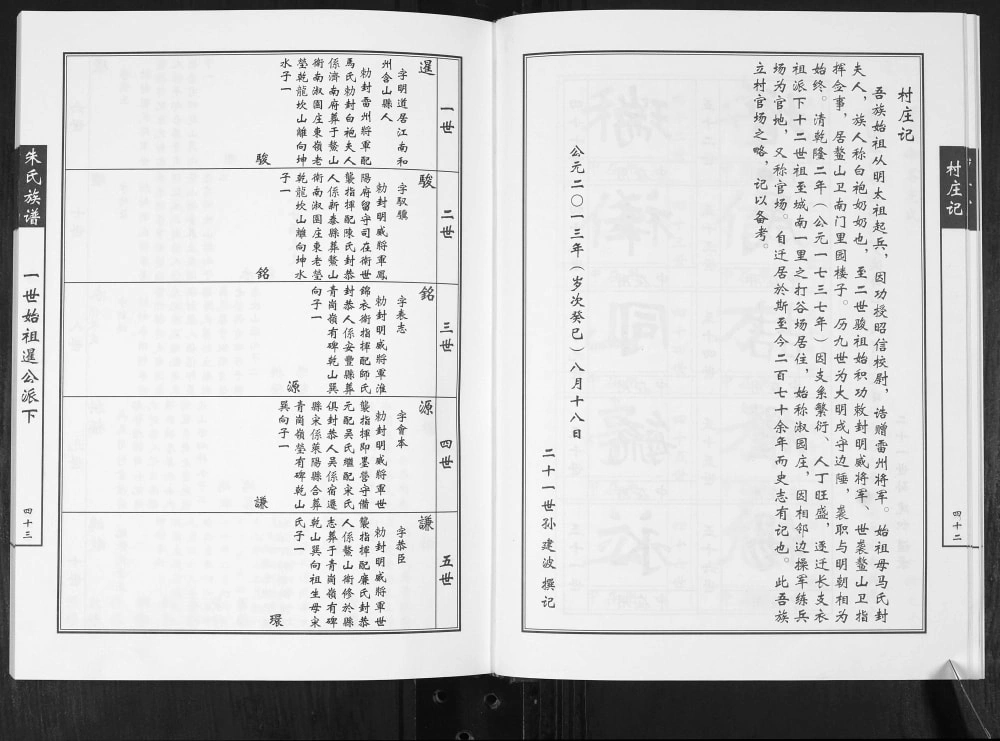 村庄记
四十二
村庄记
吾族始祖从明太祖起兵，因功授昭信校尉，诰赠雷州将军。始祖母马氏封
夫人，族人称白袍奶奶也，至二世骏祖始积功敕封明威将军、世袭鳌山卫指
挥佥事，居鳌山卫南门里园楼子。历九世为大明戍守边陲，袭职与明朝相为
始终。清乾隆二年（公元一七三七年）因支系繁衍、人丁旺盛，逐迁长支衣
祖派下十二世祖至城南一里之打谷场居住，始称淑园庄，因相邻边操军练兵
场为官地，又称官场。自迁居於斯至今二百七十余年而史志有记也。此吾族
立村官场之略，记以备考。
公元二〇一三年（岁次癸巳）八月十八日
二十一世孙建波撰记
一世
暹
字明道居江南和
州含山縣人
勅封雷州將軍配
馬氏勅封白袍夫人
係濟南府葬于鳌山
衛南淑園庄東嶺老
瑩乾龍坎山離向坤
水子一
駿
二世
駿
字馭驥
勅封明威將軍鳳
陽府留守司在衛世
襲指揮配陳氏封恭
人係新泰縣葬鳌山
衛南淑園庄東老瑩
乾龍坎山離向坤水
子一
銘
三世
銘
字表志
勅封明威將軍淮
錦衣衛指揮配師氏
封恭人係安豐縣葬
青崗嶺有碑乾山巽
向子一
源
四世
源
字會本
勅封明威將軍世
襲指揮即墨營守備
元配吴氏繼配宋氏
俱封恭人吴係宿遷
縣宋係萊陽縣合葬
青崗嶺瑩有碑乾山
巽向子一
謙
五世
謙
字恭臣
勅封明威將軍世
襲指揮配廉氏封恭
人係鳌山衛修於縣
志葬于青崗嶺有碑
乾山巽向祖生母宋
氏子一
環
朱氏族谱
一世始祖暹公派下
四十三